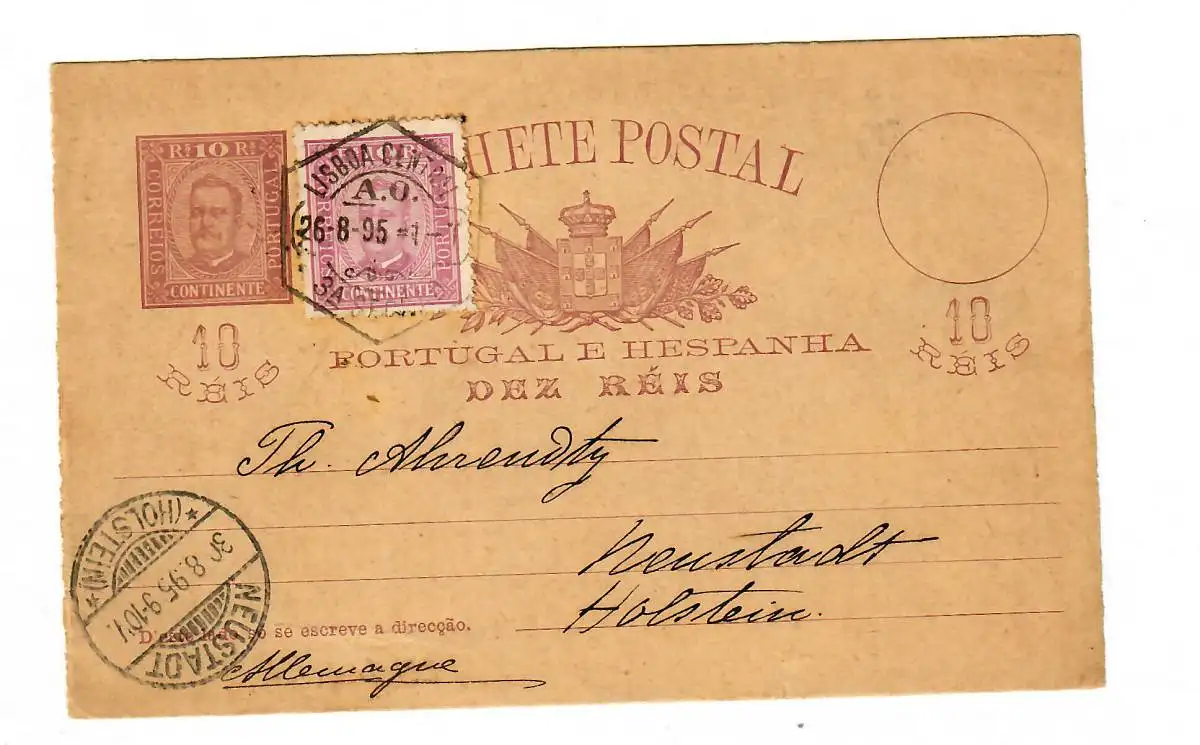 Rˢ 10 Rˢ
CORREIOS
PORTUGAL
CONTINENTE
CONTINENTE
LISBOA CENTRAL
A.O.
26-8-95
3A SE
HETE POSTAL
10
RÉIS
10
RÉIS
PORTUGAL E HESPANHA
DEZ RÉIS
Th. Ahrendtz
Neustadt
Holstein.
NEUSTADT
* (HOLSTEIN) *
30.8.95.9-10V.
D'este lado só se escreve a direcção.
Allemagne